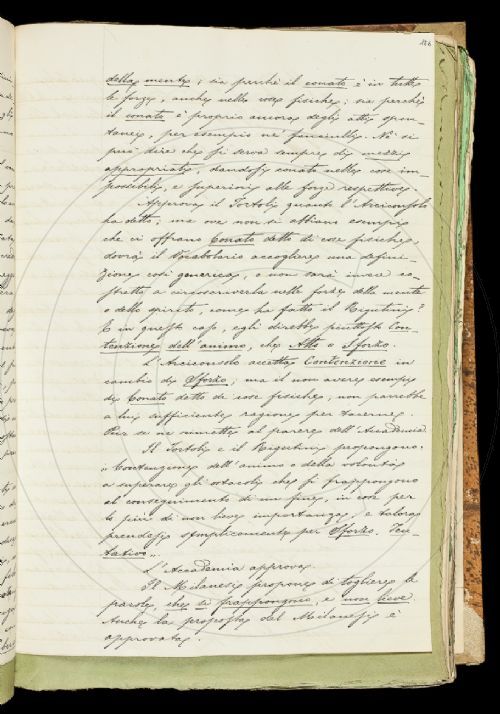 186
della mente; sia perchè il conato è in tutte
le forze, anche nelle cose fisiche; sia perchè
il conato è proprio ancora degli atti spon-
tanei, per esempio ne' fanciulli. Nè si
può dire che si serva sempre di mezzi
appropriati, dandosi conato nelle cose im-
possibili, e superiori alle forze respettive.
Approva il Tortoli quanto l'Arciconsolo
ha detto; ma ove non si abbiano esempi
che ci offrano Conato detto di cose fisiche,
dovrà il Vocabolario accogliere una defini-
zione così generica, o non sarà invece co-
stretto a circoscriverla nelle forze della mente
o dello spirito, come ha fatto il Rigutini?
E in questo caso, egli direbbe piuttosto Con-
tenzione dell'animo, che Atto o Sforzo.
L'Arciconsolo accetta Contenzione in
cambio di Sforzo; ma il non avere esempi
di Conato detto di cose fisiche, non parrebbe
a lui sufficiente ragione per tacerne.
Pure se ne rimette al parere dell'Accademia.
Il Tortoli e il Rigutini propongono:
" Contenzione dell'animo e della volontà
a superare gli ostacoli che si frappongono
al conseguimento di un fine, in cose per
lo più di non lieve importanza; e talora
prendesi semplicemente per Sforzo, Ten-
tativo ".
L'Accademia approva.
Il Milanesi propone di togliere le
parole, che si frappongono, e non lieve.
Anche la proposta del Milanesi è
approvata.